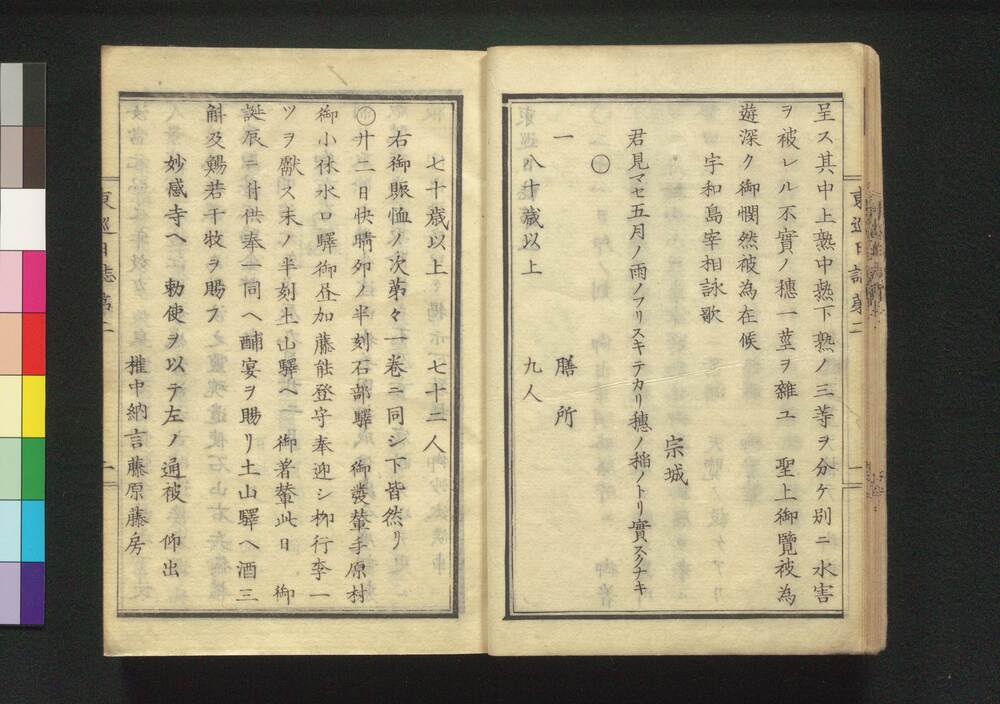 呈ス其中上熟中熟下熟ノ三等ヲ分ケ別ニ水害
ヲ被レル不實ノ穗一莖ヲ雜ユ 聖上御覽被為
遊深ク御憫然被為在候
宇和島宰相詠歌
宗城
君見マセ五月ノ雨ノフリスキテカリ穗ノ稲ノトリ實スクナキ
○
一 膳所
八十歳以上 九人
東巡日誌第二
七十歳以上 七十二人
右御賑恤ノ次第々一巻ニ同シ下皆然リ
○廿二日快晴卯ノ半刻石部驛 御發輦手原村
御小休水口驛御昼加藤能登守奉迎シ柳行李一
ツヲ獻ス未ノ半刻土山驛ヘ 御著輦此日 御
誕辰ニ付供奉一同ヘ酺宴ヲ賜リ土山驛ヘ酒三
斛及鯣若干枚ヲ賜フ
妙感寺ヘ 勅使ヲ以テ左ノ通被 仰出
権中納言藤原藤房
東巡日誌第二